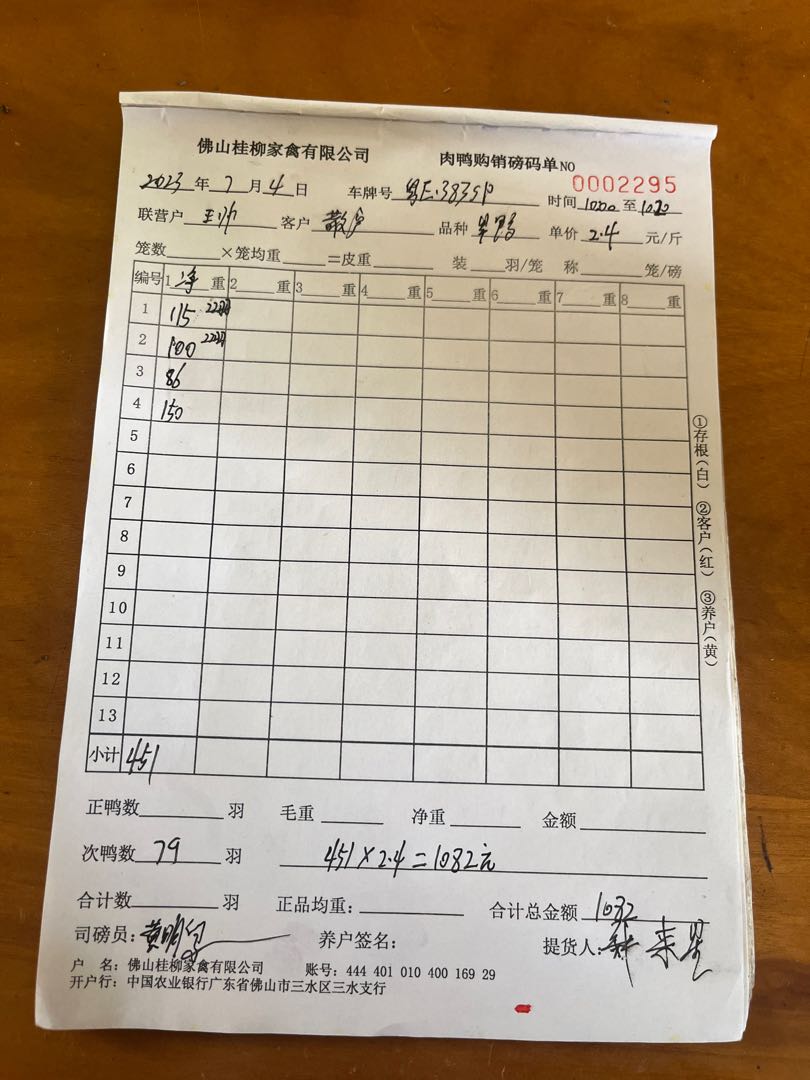 佛山桂柳家禽有限公司 肉鸭购销磅码单NO 0002295
2023年7月4日 车牌号 粤E·3839P 时间1000至1020
联营户 王帅 客户 散户 品种 单价 2.4 元/斤
笼数 ×笼均重 =皮重 装 羽/笼 称 笼/磅
编号 1净重 2 重 3 重 4 重 5 重 6 重 7 重 8 重
1 115 22羽
2 100 22羽
3 86
4 150
5
6
7
8
9
10
11
12
13
小计 451
正鸭数 羽 毛重 净重 金额
次鸭数 79 羽 451×2.4=1082元
合计数 羽 正品均重: 合计总金额 1082
司磅员: 养户签名: 提货人:
户 名: 佛山桂柳家禽有限公司 账号: 444 401 010 400 169 29
开户行: 中国农业银行广东省佛山市三水区三水支行
①存根(白) ②客户(红) ③养户(黄)